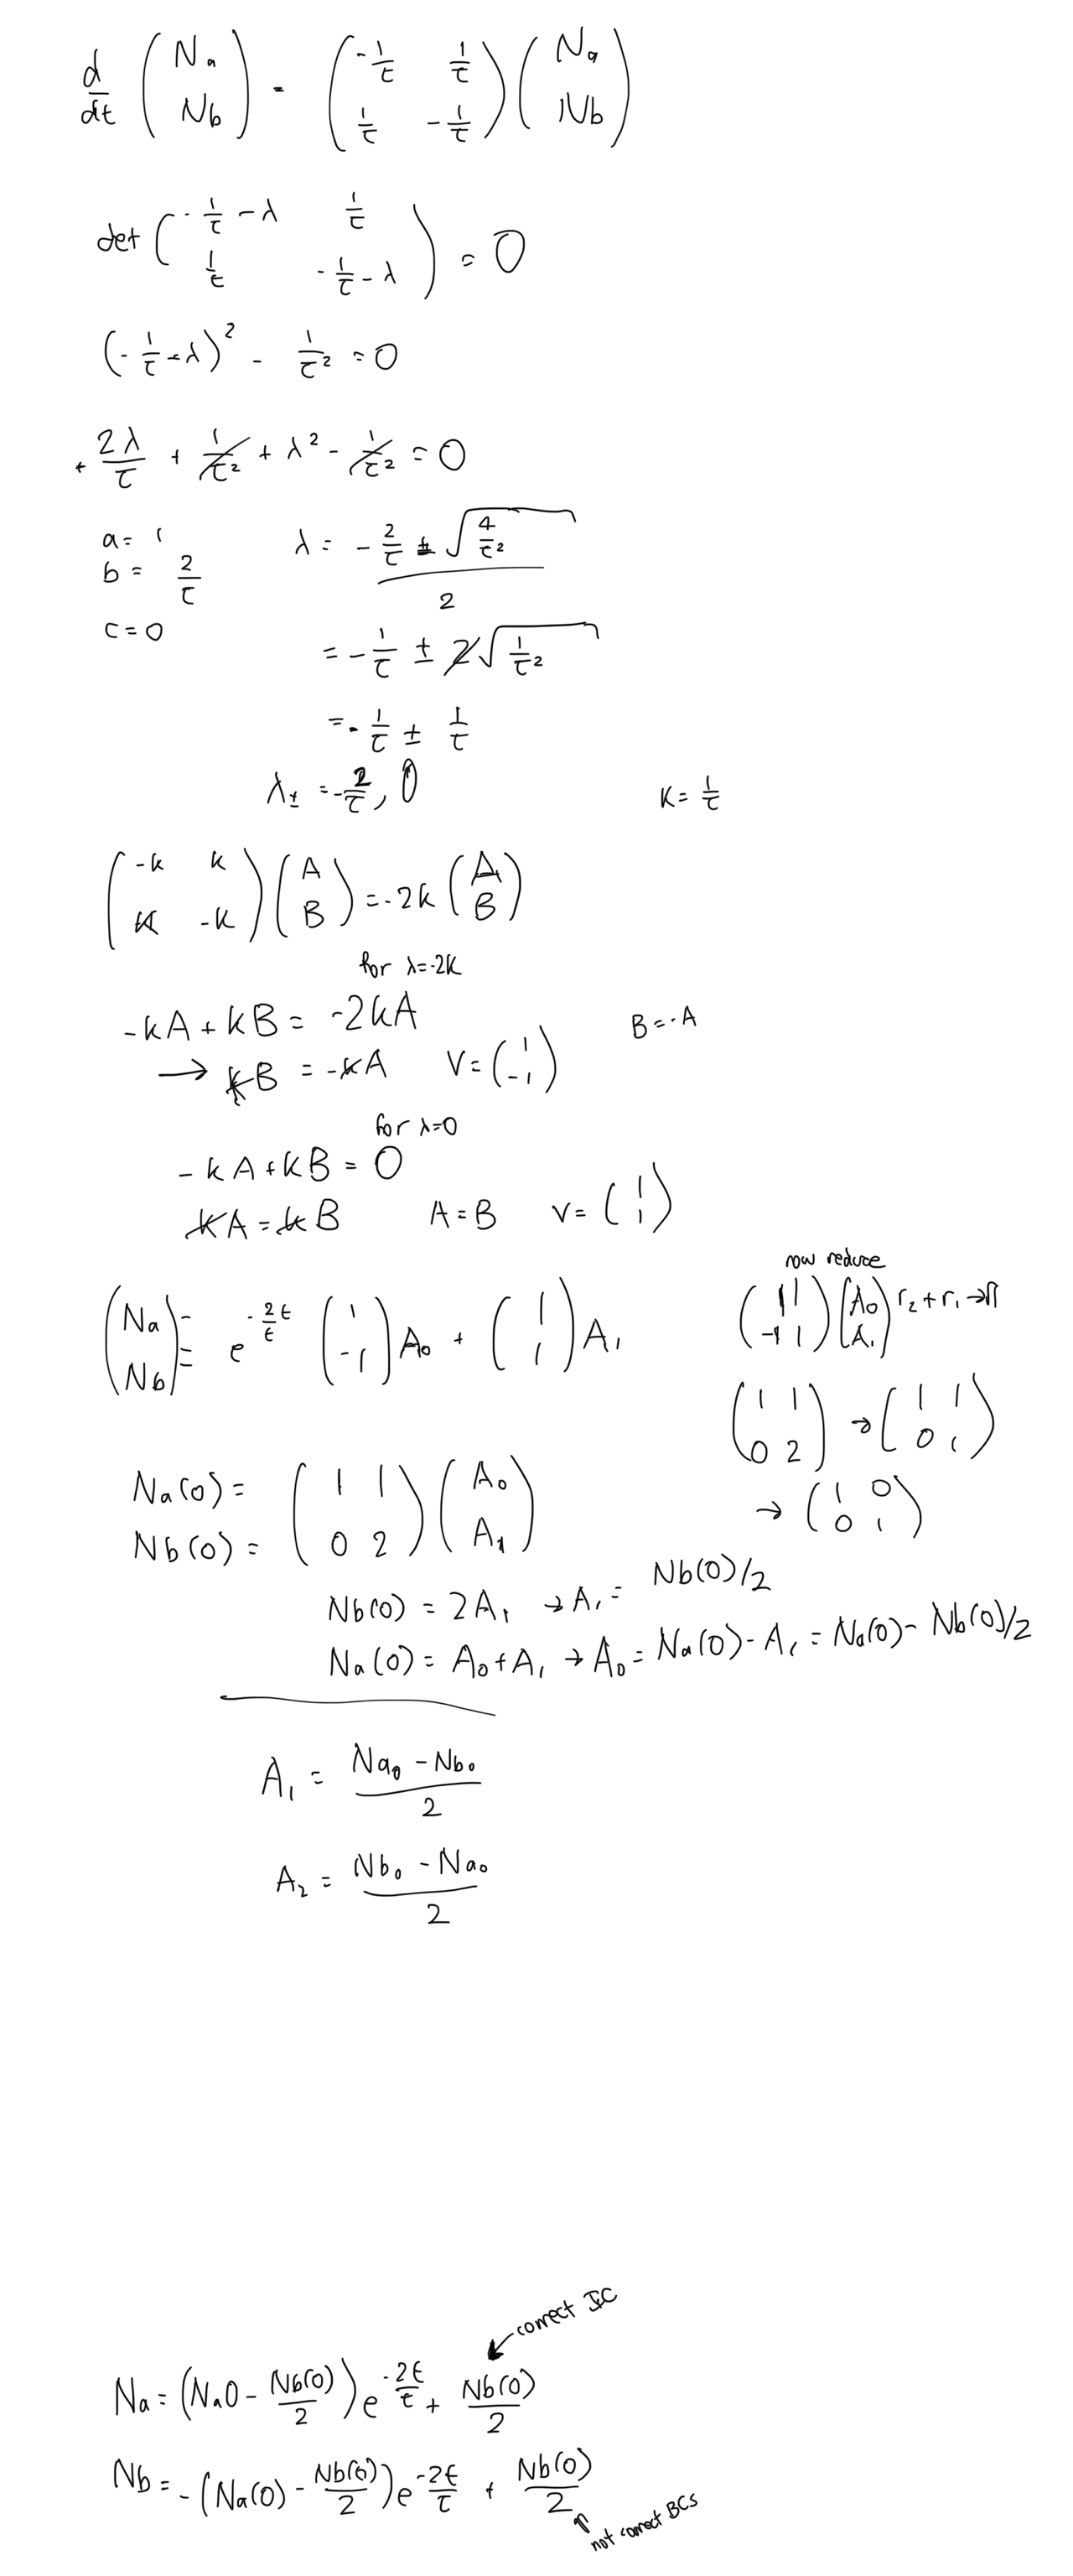 d/dt (Na Nb) = (-1/τ 1/τ 1/τ -1/τ) (Na Nb)
det (-1/τ - λ 1/τ 1/τ -1/τ - λ) = 0
(-1/τ - λ)² - 1/τ² = 0
+ 2λ/τ + 1/τ² + λ² - 1/τ² = 0
a = 1
b = 2/τ
c = 0
λ = (-2/τ ± √(4/τ²))/2
= -1/τ ± 2√(1/τ²)
= -1/τ ± 1/τ
λ± = -2/τ, 0
K = 1/τ
(-k k k -k) (A B) = -2k (A B)
for λ=-2k
-kA + kB = -2kA
B = -A
→ kB = -kA V = (1 -1)
for λ=0
-kA + kB = 0
kA = kB A = B V = (1 1)
row reduce
(1 1 -1 1) (A₀ A₁) r₂ + r₁ →
(Na Nb) = e^(-2t/τ) (1 -1) A₀ + (1 1) A₁
(1 1 0 2) → (1 1 0 1)
→ (1 0 0 1)
Na(0) =
Nb(0) = (1 1 0 2) (A₀ A₁)
Nb(0) = 2A₁ → A₁ = Nb(0)/2
Na(0) = A₀ + A₁ → A₀ = Na(0) - A₁ = Na(0) - Nb(0)/2
A₁ = (Na₀ - Nb₀)/2
A₂ = (Nb₀ - Na₀)/2
correct IC
Na = (Na0 - Nb(0)/2) e^(-2t/τ) + Nb(0)/2
Nb = -(Na(0) - Nb(0)/2) e^(-2t/τ) + Nb(0)/2
not correct BCs